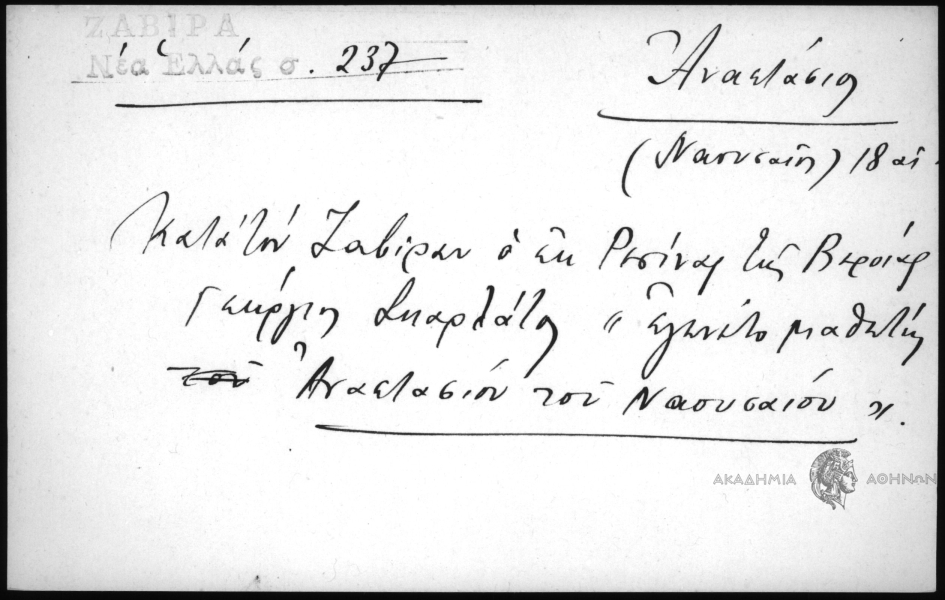 ΖΑΒΙΡΑ
Νέα Ἑλλάς σ. 237
Ἀναστάσιος
(Ναουσαῖος) 18 αἰ.
Κατά τόν Ζαβίραν ὁ ἐκ Ρεσίνας τῆς Βεροίας
Γεώργιος Σκαρλάτος "ἐγένετο μαθητής
του Ἀναστασίου τοῦ Ναουσαίου".
ΑΚΑΔΗΜΙΑ ΑΘΗΝΩΝ